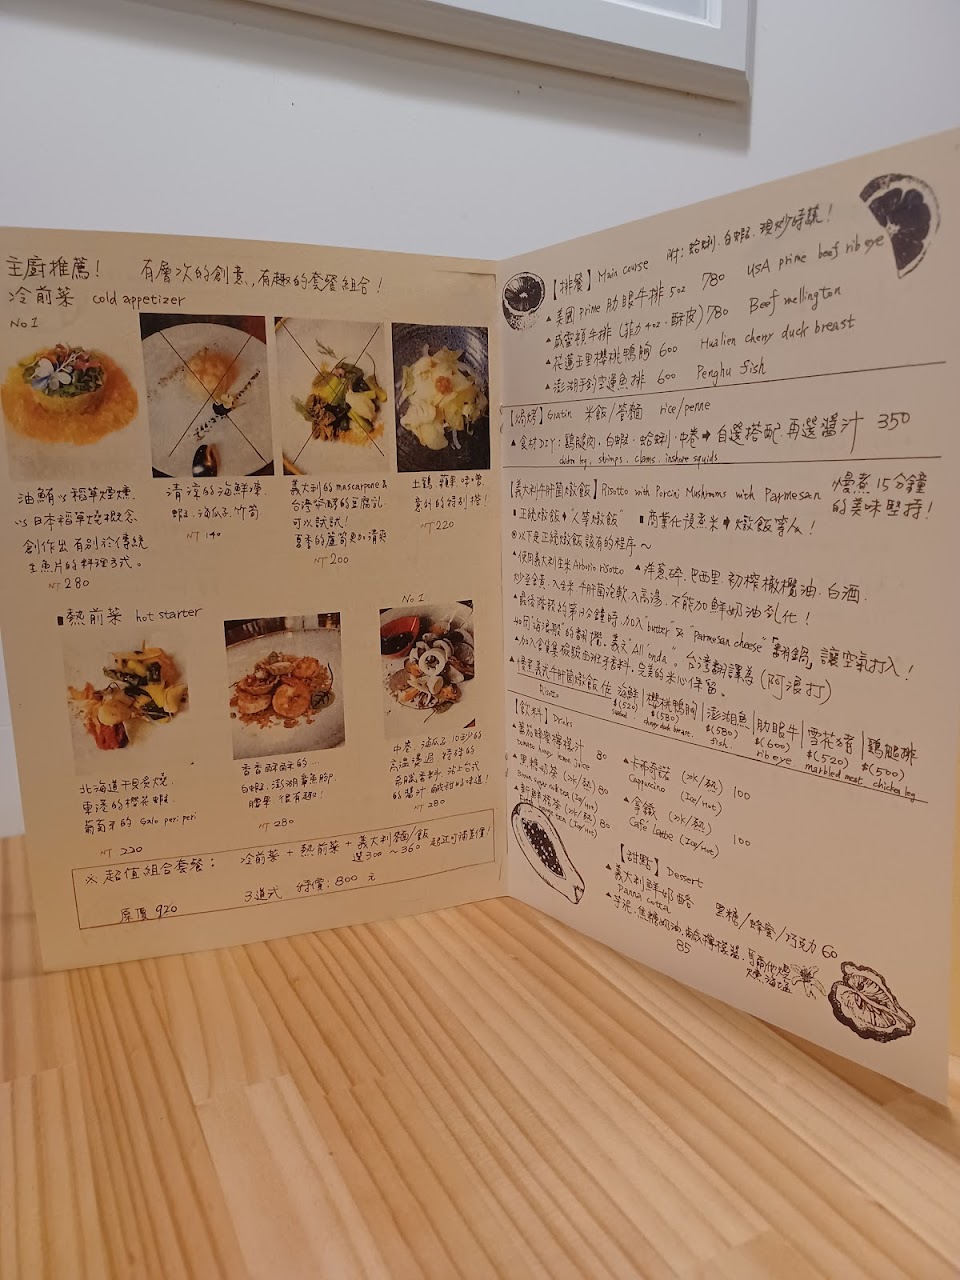 主廚推薦！ 有層次的創意，有趣的套餐組合！
冷前菜 cold appetizer
No 1
油鮪以稻草煙燻，
以日本稻草燒概念，
創作出有別於傳統
生魚片的料理方式。
NT 280
清涼的海鮮凍
蝦，海瓜子，竹筍
NT 140
義大利的 mascarpone &
台灣
可以試試！
夏季的蘆筍更加清爽
NT 200
土雞 蘋果
意外的特別搭！
NT 220
■熱前菜 hot starter
北海道干貝炙燒，
東港的櫻花蝦，
葡萄牙的 Galo peri peri
NT 220
香香酥酥的…
白蝦，澎湖章魚腳，
很有趣！
NT 280
No 1
中卷，海瓜子 10秒的
高溫燙過，特殊的
香料，沾上台式
的醬汁 鹹甜好味道！
NT 280
※超值組合套餐： 冷前菜 + 熱前菜 + 義大利麵/飯
選300～360 超过可補差價！
原價 920 3道式 特價：800 元
【排餐】Main course 附：蛤蜊．白蝦．現炒時蔬！
▲美國 prime 肋眼牛排 5oz 780 USA prime beef rib eye
▲威靈頓牛排 (菲力 4oz．酥皮) 780 Beef mellington
▲花蓮玉里櫻桃鴨胸 600 Hualien cherry duck breast
▲澎湖手釣空運魚排 600 Penghu fish
【焗烤】Gratin 米飯/管麵 rice/penne
▲食材DIY：雞腿肉，白蝦，蛤蜊，中卷➡自選搭配，再選醬汁 350
chicken leg, shrimps, clams, inshore squids
【義大利牛肝菌燉飯】Risotto with Porcini Mushrooms with Parmesan 慢煮15分鐘
的美味堅持！
■正統燉飯➡"人等燉飯" ■商業化預煮米➡燉飯等人！
◎以下是正統燉飯該有的程序～
▲使用義大利生米 Arborio risotto ▲洋蔥碎，巴西里，初榨橄欖油，白酒，
炒至金黃，入生米，牛肝菌泡軟，入高湯，不能加鮮奶油乳化！
▲最後階段的第13分鐘時，加入"butter"及"Parmesan cheese"「翻鍋」讓空氣打入！
如同"海浪般"的翻攪，義文"All'onda"。台灣翻譯為(阿浪打)
▲加入含皇集檢驗由班牙香料，完美的米心保留。
▲慢煮義式牛肝菌燉飯佐 海鮮|櫻桃鴨胸|澎湖魚|肋眼牛|雪花豬|雞腿排
Risotto $(520) seafood $(580) cherry duck breast $(580) fish $(600) rib eye $(520) marbled meat $(500) chicken leg
【飲料】Drinks
▲蕃茄蜂蜜檸檬汁 80
tomato honey lemon juice
▲黑糖奶茶 (冰/熱) 80
Brown sugar milk tea (Ice/Hot)
▲新鮮花茶 (冰/熱) 80
tea (Ice/Hot)
▲卡布奇諾 (冰/熱) 100
Cappucino (Ice/Hot)
▲拿鐵 (冰/熱) 100
Café latte (Ice/Hot)
【甜點】Dessert
▲義大利鮮奶酪 黑糖/蜂蜜/巧克力 60
Panna cotta
▲芋泥，焦糖奶油，鹹檸檬醬，
燻海塩 85